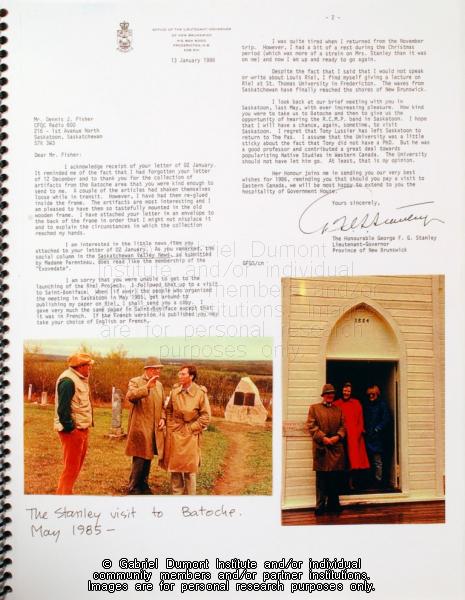 OFFICE OF THE LIEUTENANT-GOVERNOR
OF NEW BRUNSWICK
P.O. BOX 6000
FREDERICTON, N.B.
E3B 5H1
13 January 1986
Mr. Dennis J. Fisher
CFQC Radio 600
216 - 1st Avenue North
Saskatoon, Saskatchewan
S7K 3W3
Dear Mr. Fisher:
I acknowledge receipt of your letter of 02 January.
It reminded me of the fact that I had forgotten your letter
of 12 December and to thank you for the collection of
artifacts from the Batoche area that you were kind enough to
send to me. A couple of the articles had shaken themselves
loose while in transit. However, I have had them re-glued
inside the frame. The artifacts are most interesting and I
am pleased to have them so tastefully mounted in the old
wooden frame. I have attached your letter in an envelope to
the back of the frame in order that I might not misplace it
and to explain the circumstances in which the collection
reached my hands.
I am interested in the little news item you
attached to your letter of 02 January. As you remarked, the
social column in the Saskatoon Valley News, as submitted
by Madame Parenteau, does read like the membership of the
"Exovedate".
I am sorry that you were unable to get to the
launching of the Riel Project. I followed that up to a visit
to Saint-Boniface. When (if ever) the people who organized
the meeting in Saskatoon in May 1985, get around to
publishing my paper on Riel, I shall send you a copy. I
gave very much the same paper in Saint-Boniface except that
it was in French. If the French version is published you may
take your choice of English or French.
- 2 -
I was quite tired when I returned from the November
trip. However, I had a bit of a rest during the Christmas
period (which was more of a strain on Mrs. Stanley than it was
on me) and now I am up and ready to go again.
Despite the fact that I said I would not speak
or write about Louis Riel, I find myself giving a lecture on
Riel at St. Thomas University in Fredericton. The waves from
Saskatchewan have finally reached the shores of New Brunswick.
I look back at our brief meeting with you in
Saskatoon, last May, with ever increasing pleasure. How kind
you were to take us to Batoche and then to give us the
opportunity of hearing the R.C.M.P. band in Saskatoon. I hope
that I will have a chance, again, sometime, to visit
Saskatoon. I regret that Tony Lussier has left Saskatoon to
return to The Pas. I assume that the University was a little
sticky about the fact that Tony did not have a PhD. But he was
a good professor and contributed a great deal towards
popularizing Native Studies in Western Canada. The University
should not have let him go. At least, that is my opinion.
Her honour joins me in sending you our very best
wishes for 1986, reminding you that should you pay a visit to
Eastern Canada, we will be most happy to extend to you the
hospitality of Government House.
Yours sincerely,
The Honourable George F. G. Stanley
Lieutenant-Governor
Province of New Brunswick
GFGS/cn
1884
The Stanley visit to Batoche.
May 1985 -
© Gabriel Dumont Institute and/or individual
community members and/or partner institutions.
Images are for personal research purposes only.